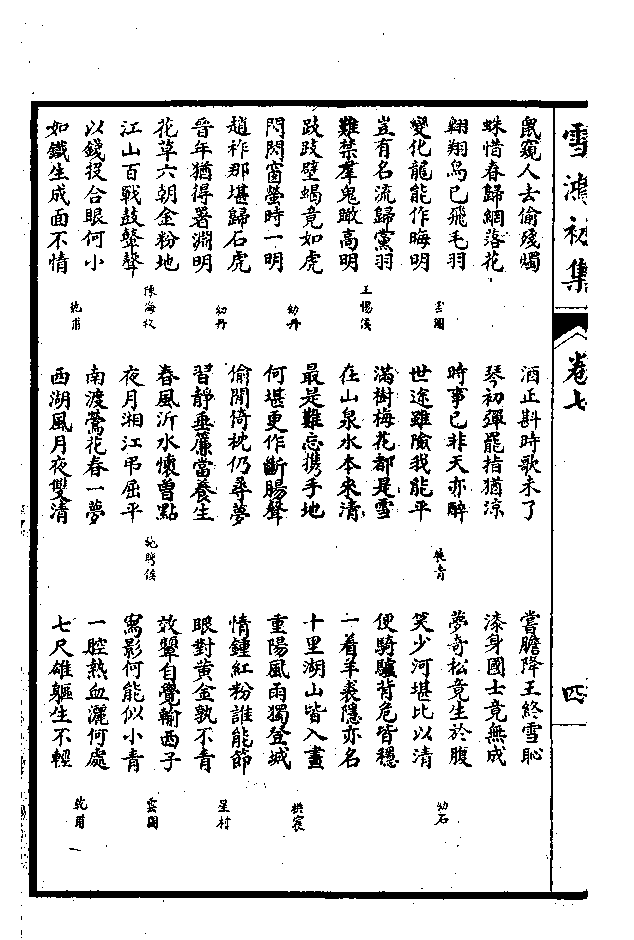 雪鴻初集
卷七
四
鼠窺人去偷殘燭
蛛惜春歸網落花
翱翔鳥已飛毛羽
變化龍能作晦明
雲圃
豈有名流歸黨羽
難禁羣鬼瞰高明
王惕溪
跂跂壁蝎竟如虎
閃閃窗螢時一明
幼丹
趙祚那堪歸石虎
晉年猶得署淵明
幼丹
花草六朝金粉地
江山百戰鼓鼙聲
陳海牧
以錢投合眼何小
如鐵生成面不情
乾甫
酒正斟時歌未了
琴初彈罷指猶涼
時事已非天亦醉
世途雖險我能平
青
滿樹梅花都是雪
在山泉水本來清
最是難忘携手地
何堪更作斷腸聲
偷閒倚枕仍尋夢
習靜垂簾當養生
春風沂水懷曾點
夜月湘江弔屈平
聘侯
南渡鶯花春一夢
西湖風月夜雙清
嘗膽降王終雪恥
漆身國士竟無成
夢奇松竟生於腹
笑少河堪比以清
幼石
便騎驢背危皆穩
一着羊裘隱亦名
十里湖山皆入畫
重陽風雨獨登城
拱宸
情鍾紅粉誰能節
眼對黃金孰不青
星村
效顰自覺輸西子
寫影何能似小青
雲圃
一腔熱血灑何處
七尺雄軀生不輕
乾甫